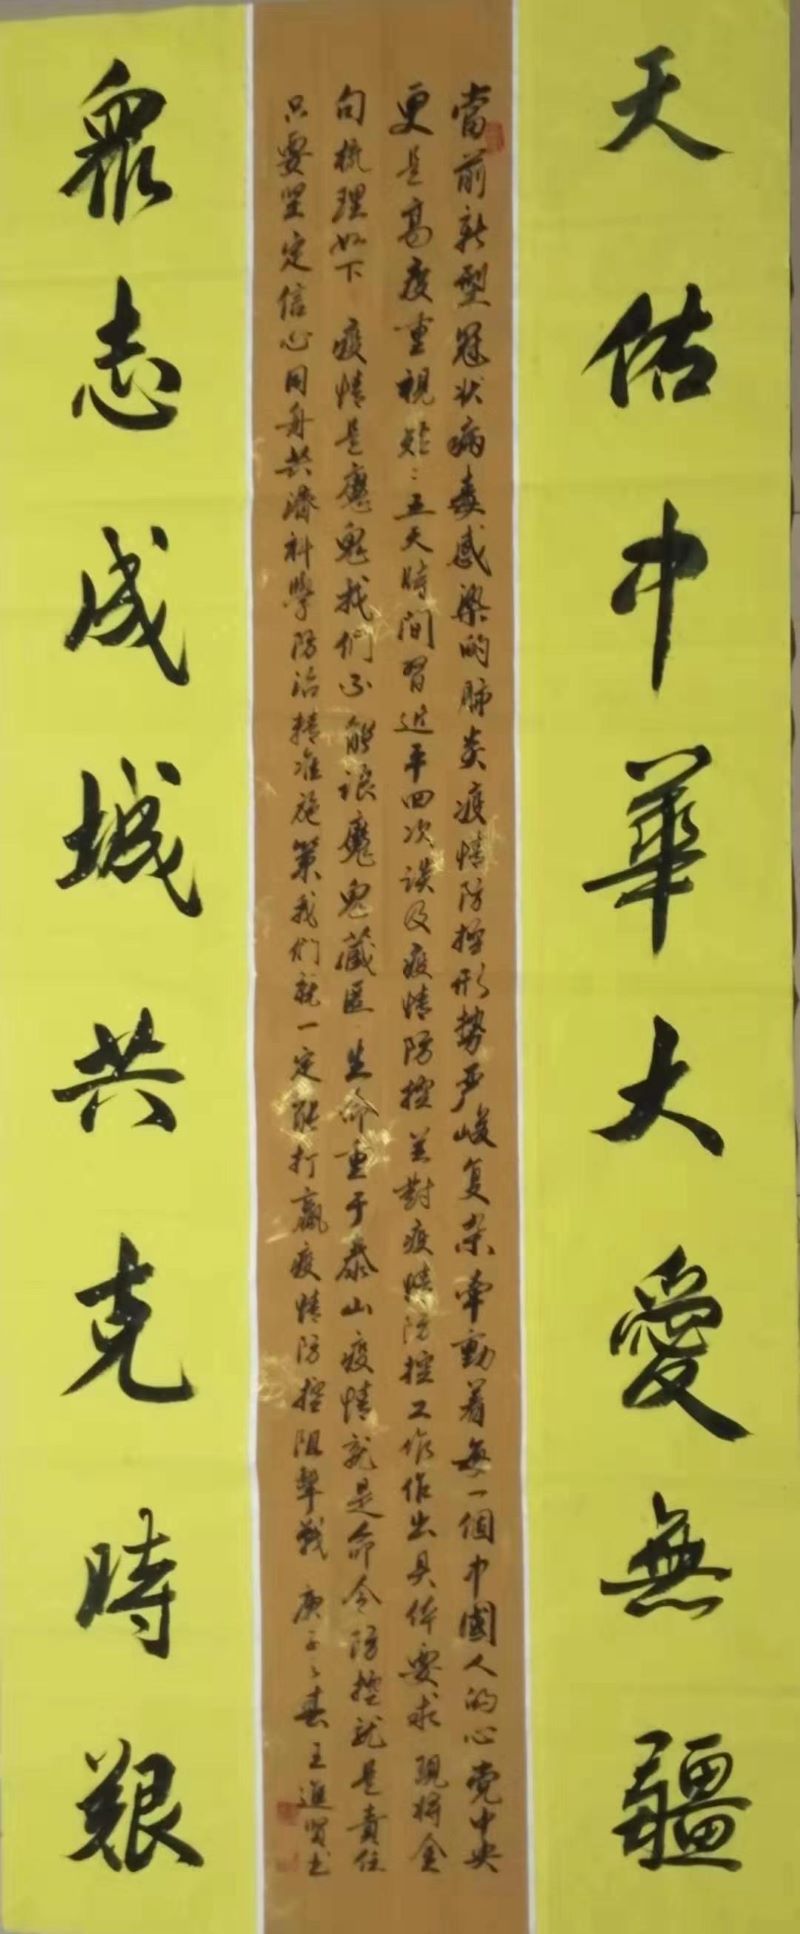 天佑中華大愛無疆
當前新型冠状病毒感染的肺炎疫情防控形势严峻复杂牵動着每一個中國人的心党中央
更是高度重視短短五天時间習近平四次谈及疫情防控并對疫情防控工作作出具体要求現将金
句梳理如下 疫情是魔鬼我們不能讓魔鬼藏匿 生命重于泰山疫情就是命令防控就是責任
只要坚定信心同舟共濟科學防治精准施策我们就一定能打贏疫情防控阻擊戰 庚子之春王進賢书
眾志成城共克時艱